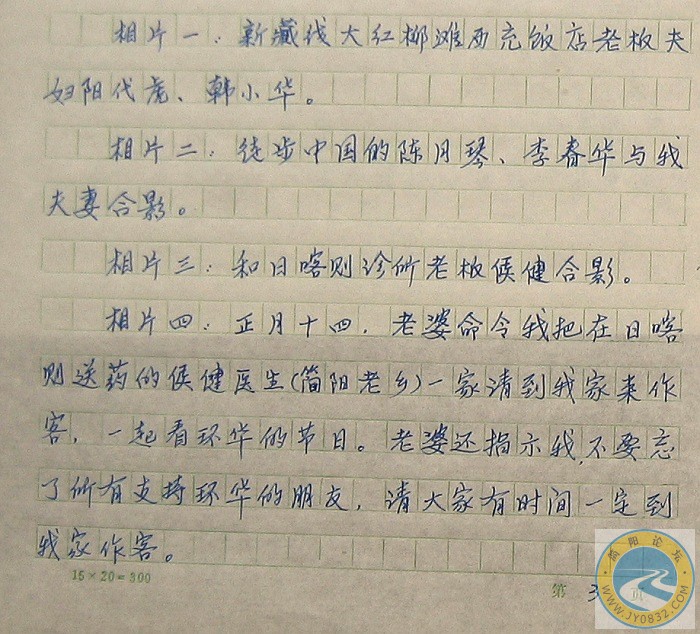 相片一：新藏线大红柳滩西充饭店老板夫
妇阳代虎、韩小华。
相片二：徒步中国的陈月琴、李春华与我
夫妻合影。
相片三：和日喀则诊所老板侯健合影。
相片四：正月十四，老婆命令我把在日喀
则送药的侯健医生(简阳老乡)一家请到我家来作
客，一起看环华的节目。老婆还指示我，不要忘
了所有支持环华的朋友，请大家有时间一定到
我家作客。
15×20=300
第 3 页
简阳论坛
WWW.JY0832.COM